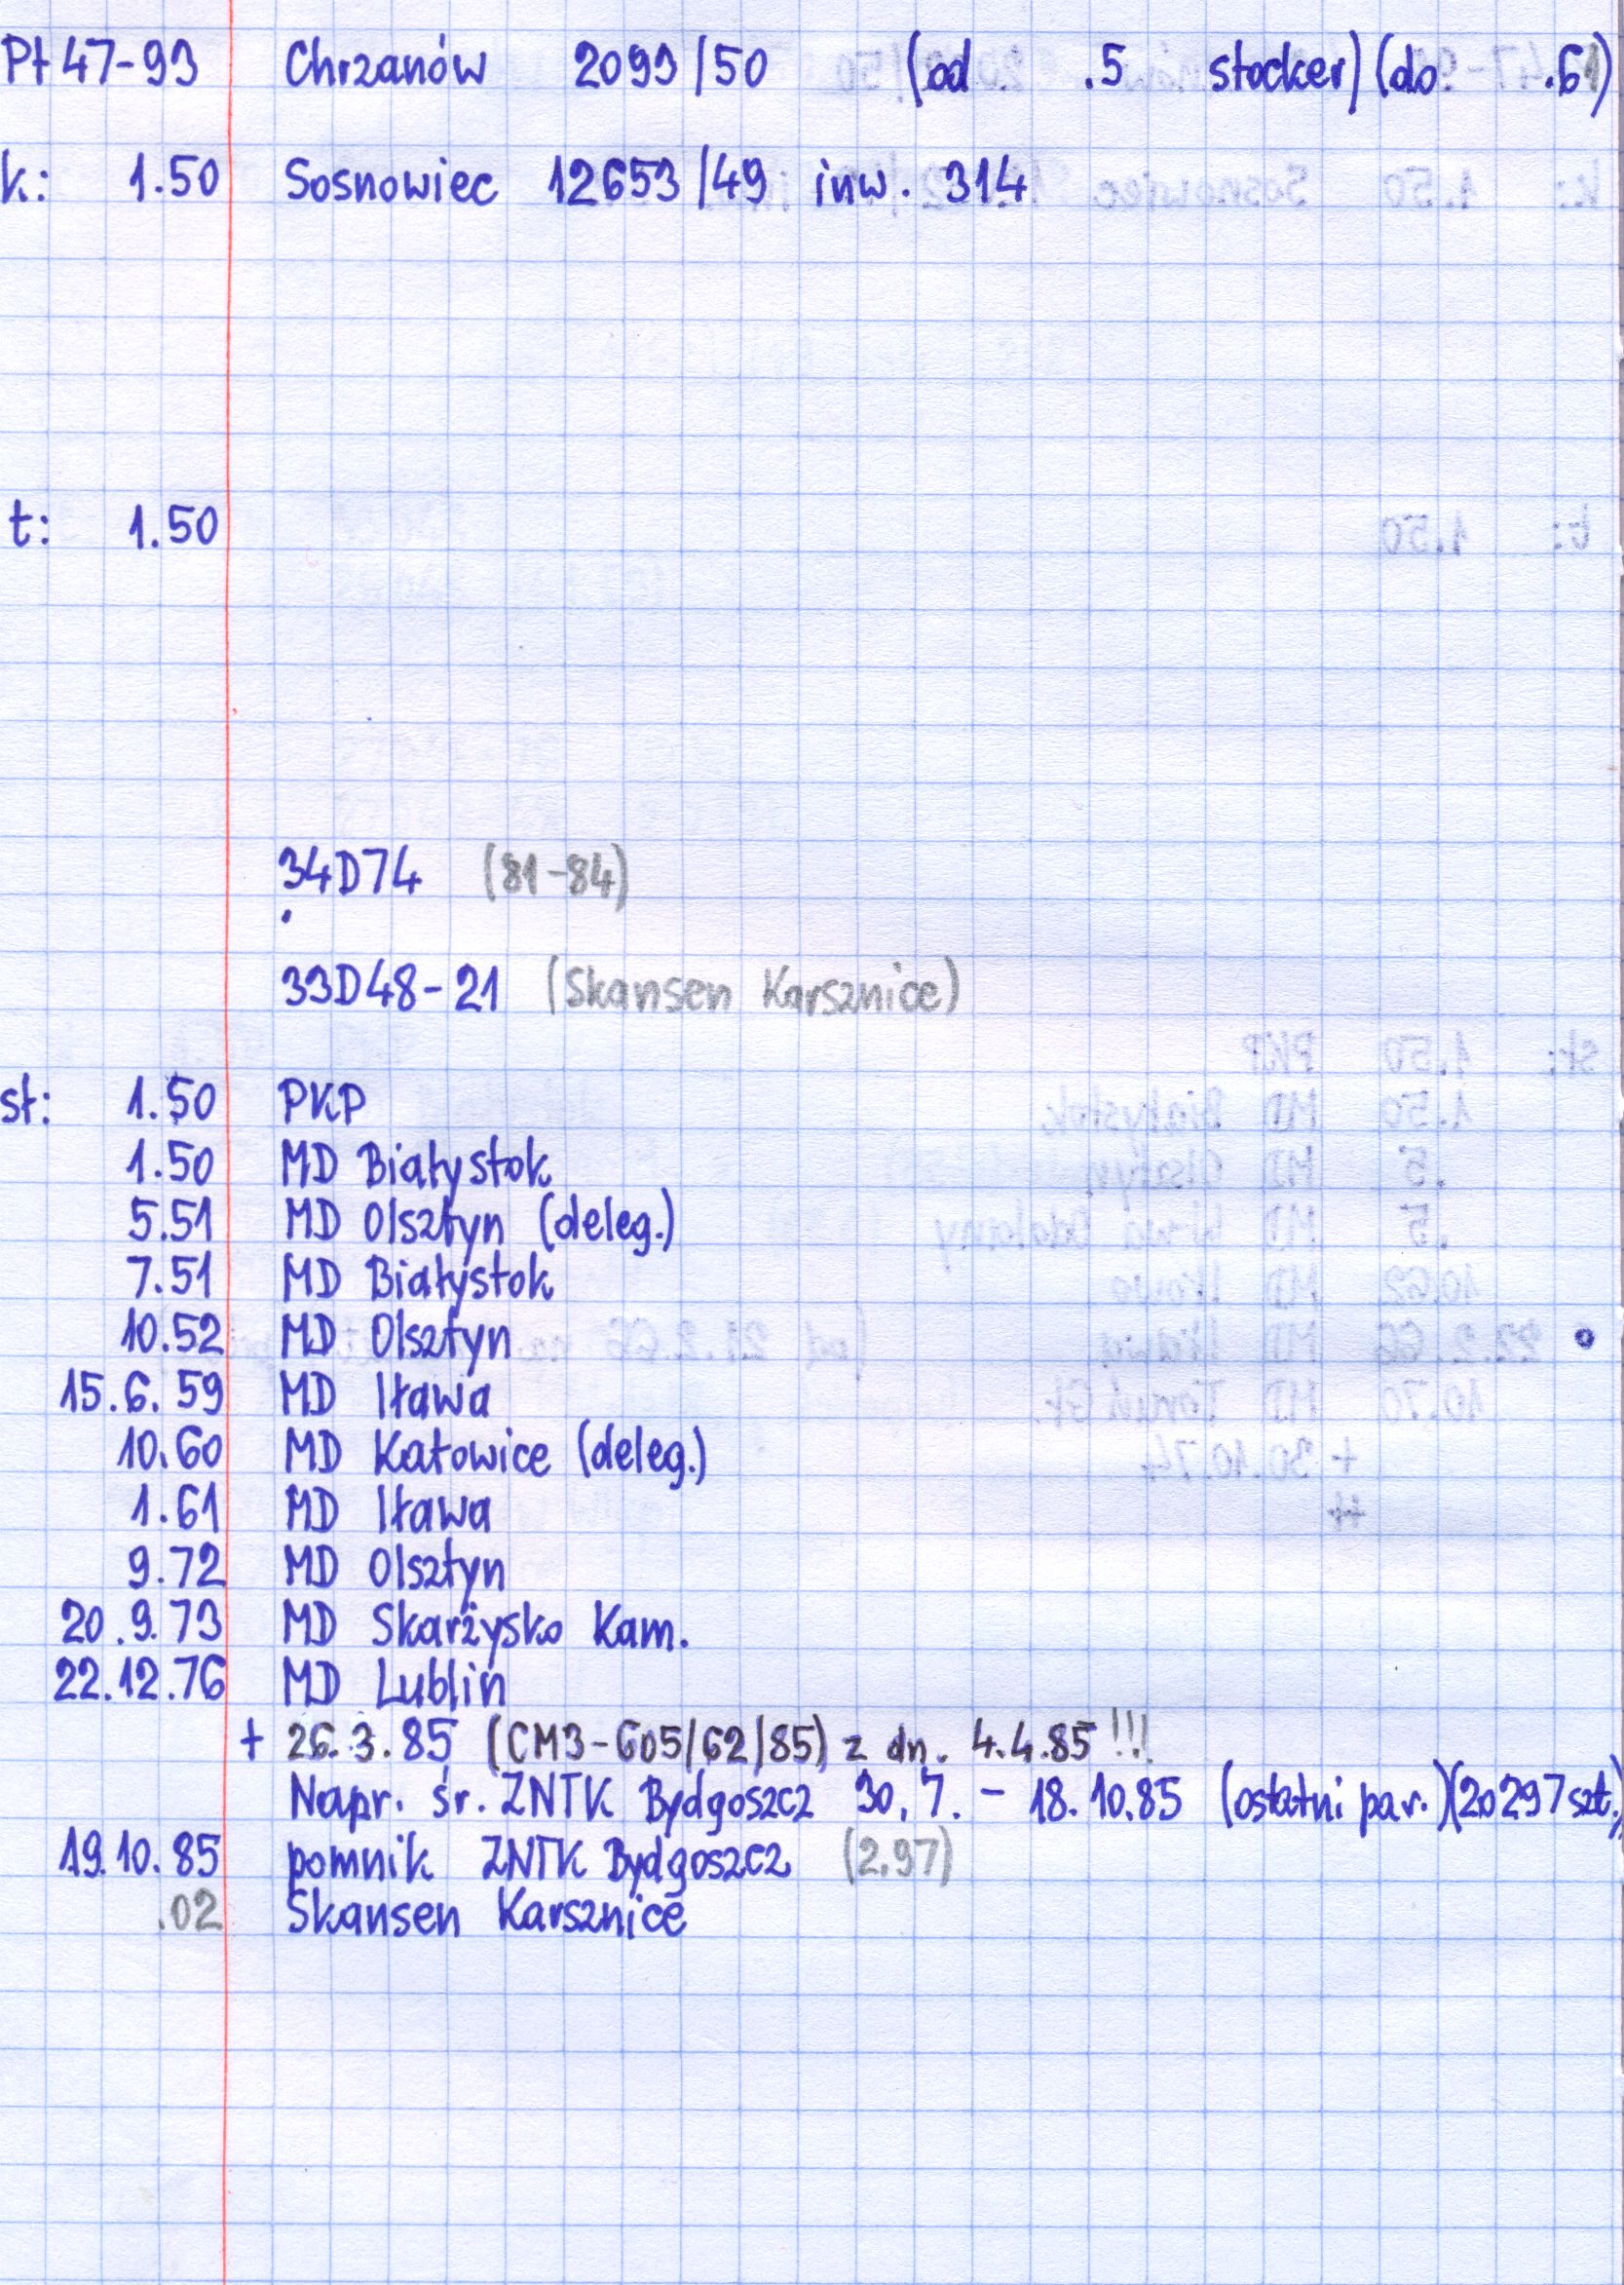 Pt 47-93 Chrzanów 2093/50 (od .5 stocker) (do .6)
k: 1.50 Sosnowiec 12653/49 inw. 314
t: 1.50
34D74 (81-84)
33D48-21 (Skansen Karsznice)
st: 1.50 PKP
1.50 MD Białystok
5.51 MD Olsztyn (deleg.)
7.51 MD Białystok
10.52 MD Olsztyn
15.6.59 MD Iława
10.60 MD Katowice (deleg.)
1.61 MD Iława
9.72 MD Olsztyn
20.9.73 MD Skarżysko Kam.
22.12.76 MD Lublin
+ 26.3.85 (CM3-605/62/85) z dn. 4.4.85 !!!
Napr. śr. ZNTK Bydgoszcz 30.7. - 18.10.85 (ostatni par.) (20297 szt.)
19.10.85 pomnik ZNTK Bydgoszcz (2.97)
.02 Skansen Karsznice